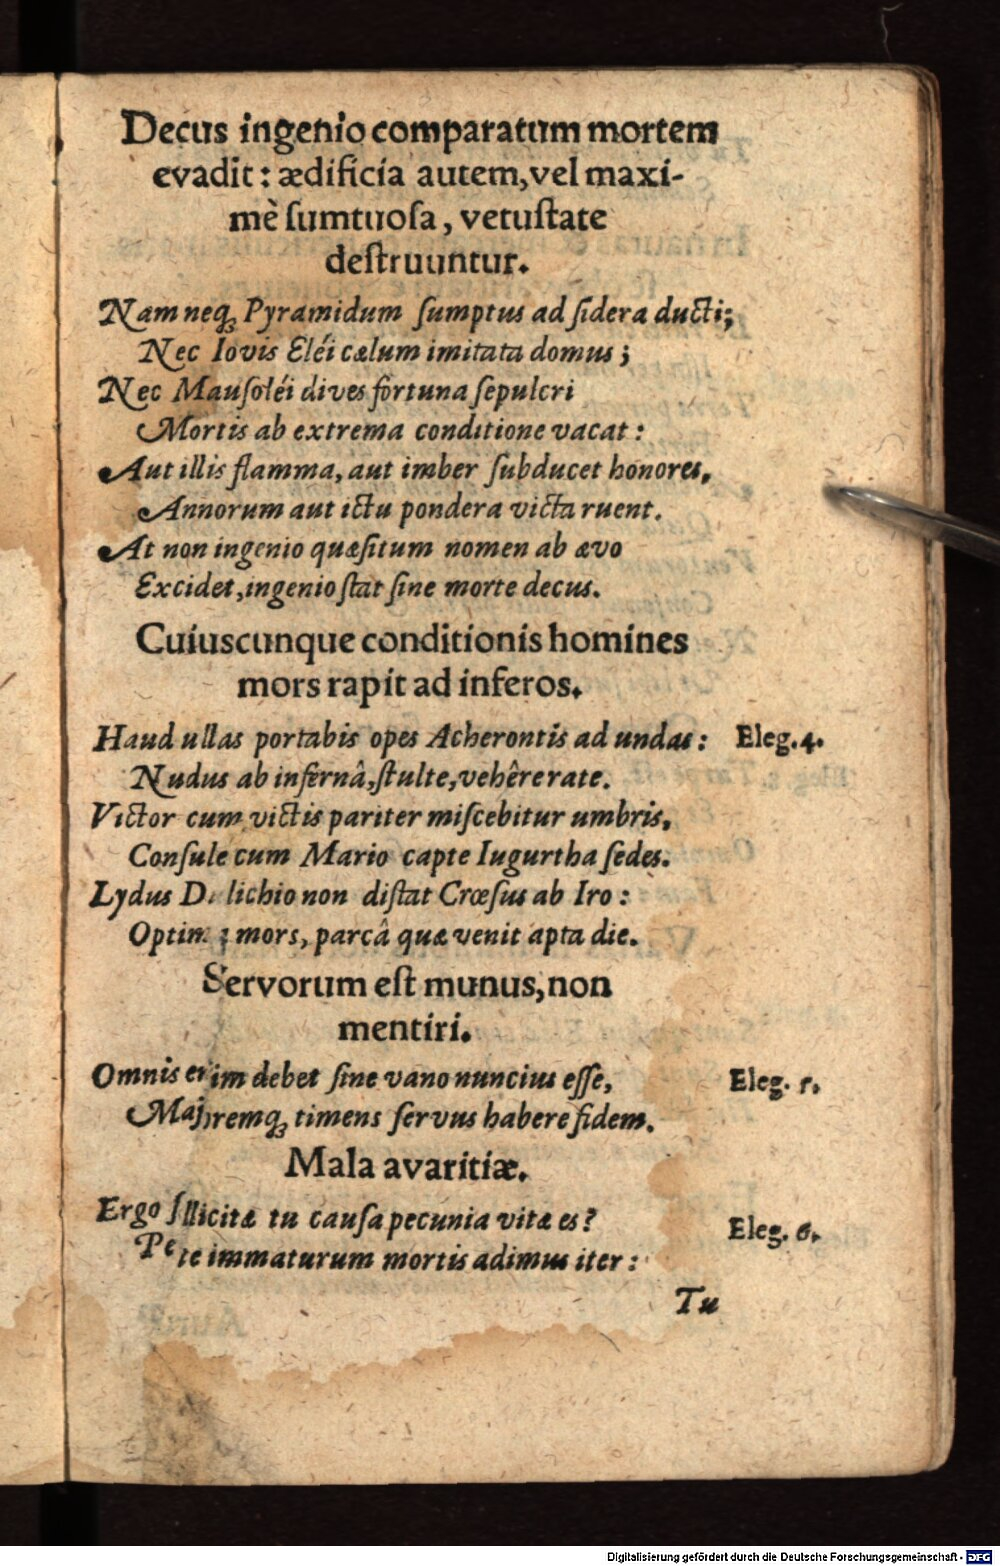 Decus ingenio comparatum mortem
evadit: ædificia autem, vel maxi-
mè sumtuosa, vetustate
destruuntur.
Nam neq; Pyramidum sumptus ad sidera ducti;
Nec Iovis Eléi cælum imitata domus;
Nec Mausoléi dives fortuna sepulcri
Mortis ab extrema conditione vacat:
Aut illis flamma, aut imber subducet honores,
Annorum aut ictu pondera victa ruent.
At non ingenio quæsitum nomen ab ævo
Excidet, ingenio stat sine morte decus.
Cuiuscunque conditionis homines
mors rapit ad inferos.
Haud ullas portabis opes Acherontis ad undas: Eleg. 4.
Nudus ab infernâ, stulte, vehêre rate.
Victor cum victis pariter miscebitur umbris,
Consule cum Mario capte Iugurtha sedes.
Lydus D lichio non distat Crœsus ab Iro:
Optim mors, parcâ quæ venit apta die.
Servorum est munus, non
mentiri.
Omnis enim debet sine vano nuncius esse, Eleg. 5.
Majoremq; timens servus habere fidem.
Mala avaritiæ.
Ergo sollicitæ tu causa pecunia vitæ es? Eleg. 6.
Per te immaturum mortis adimus iter:
Tu
Digitalisierung gefördert durch die Deutsche Forschungsgemeinschaft - DFG